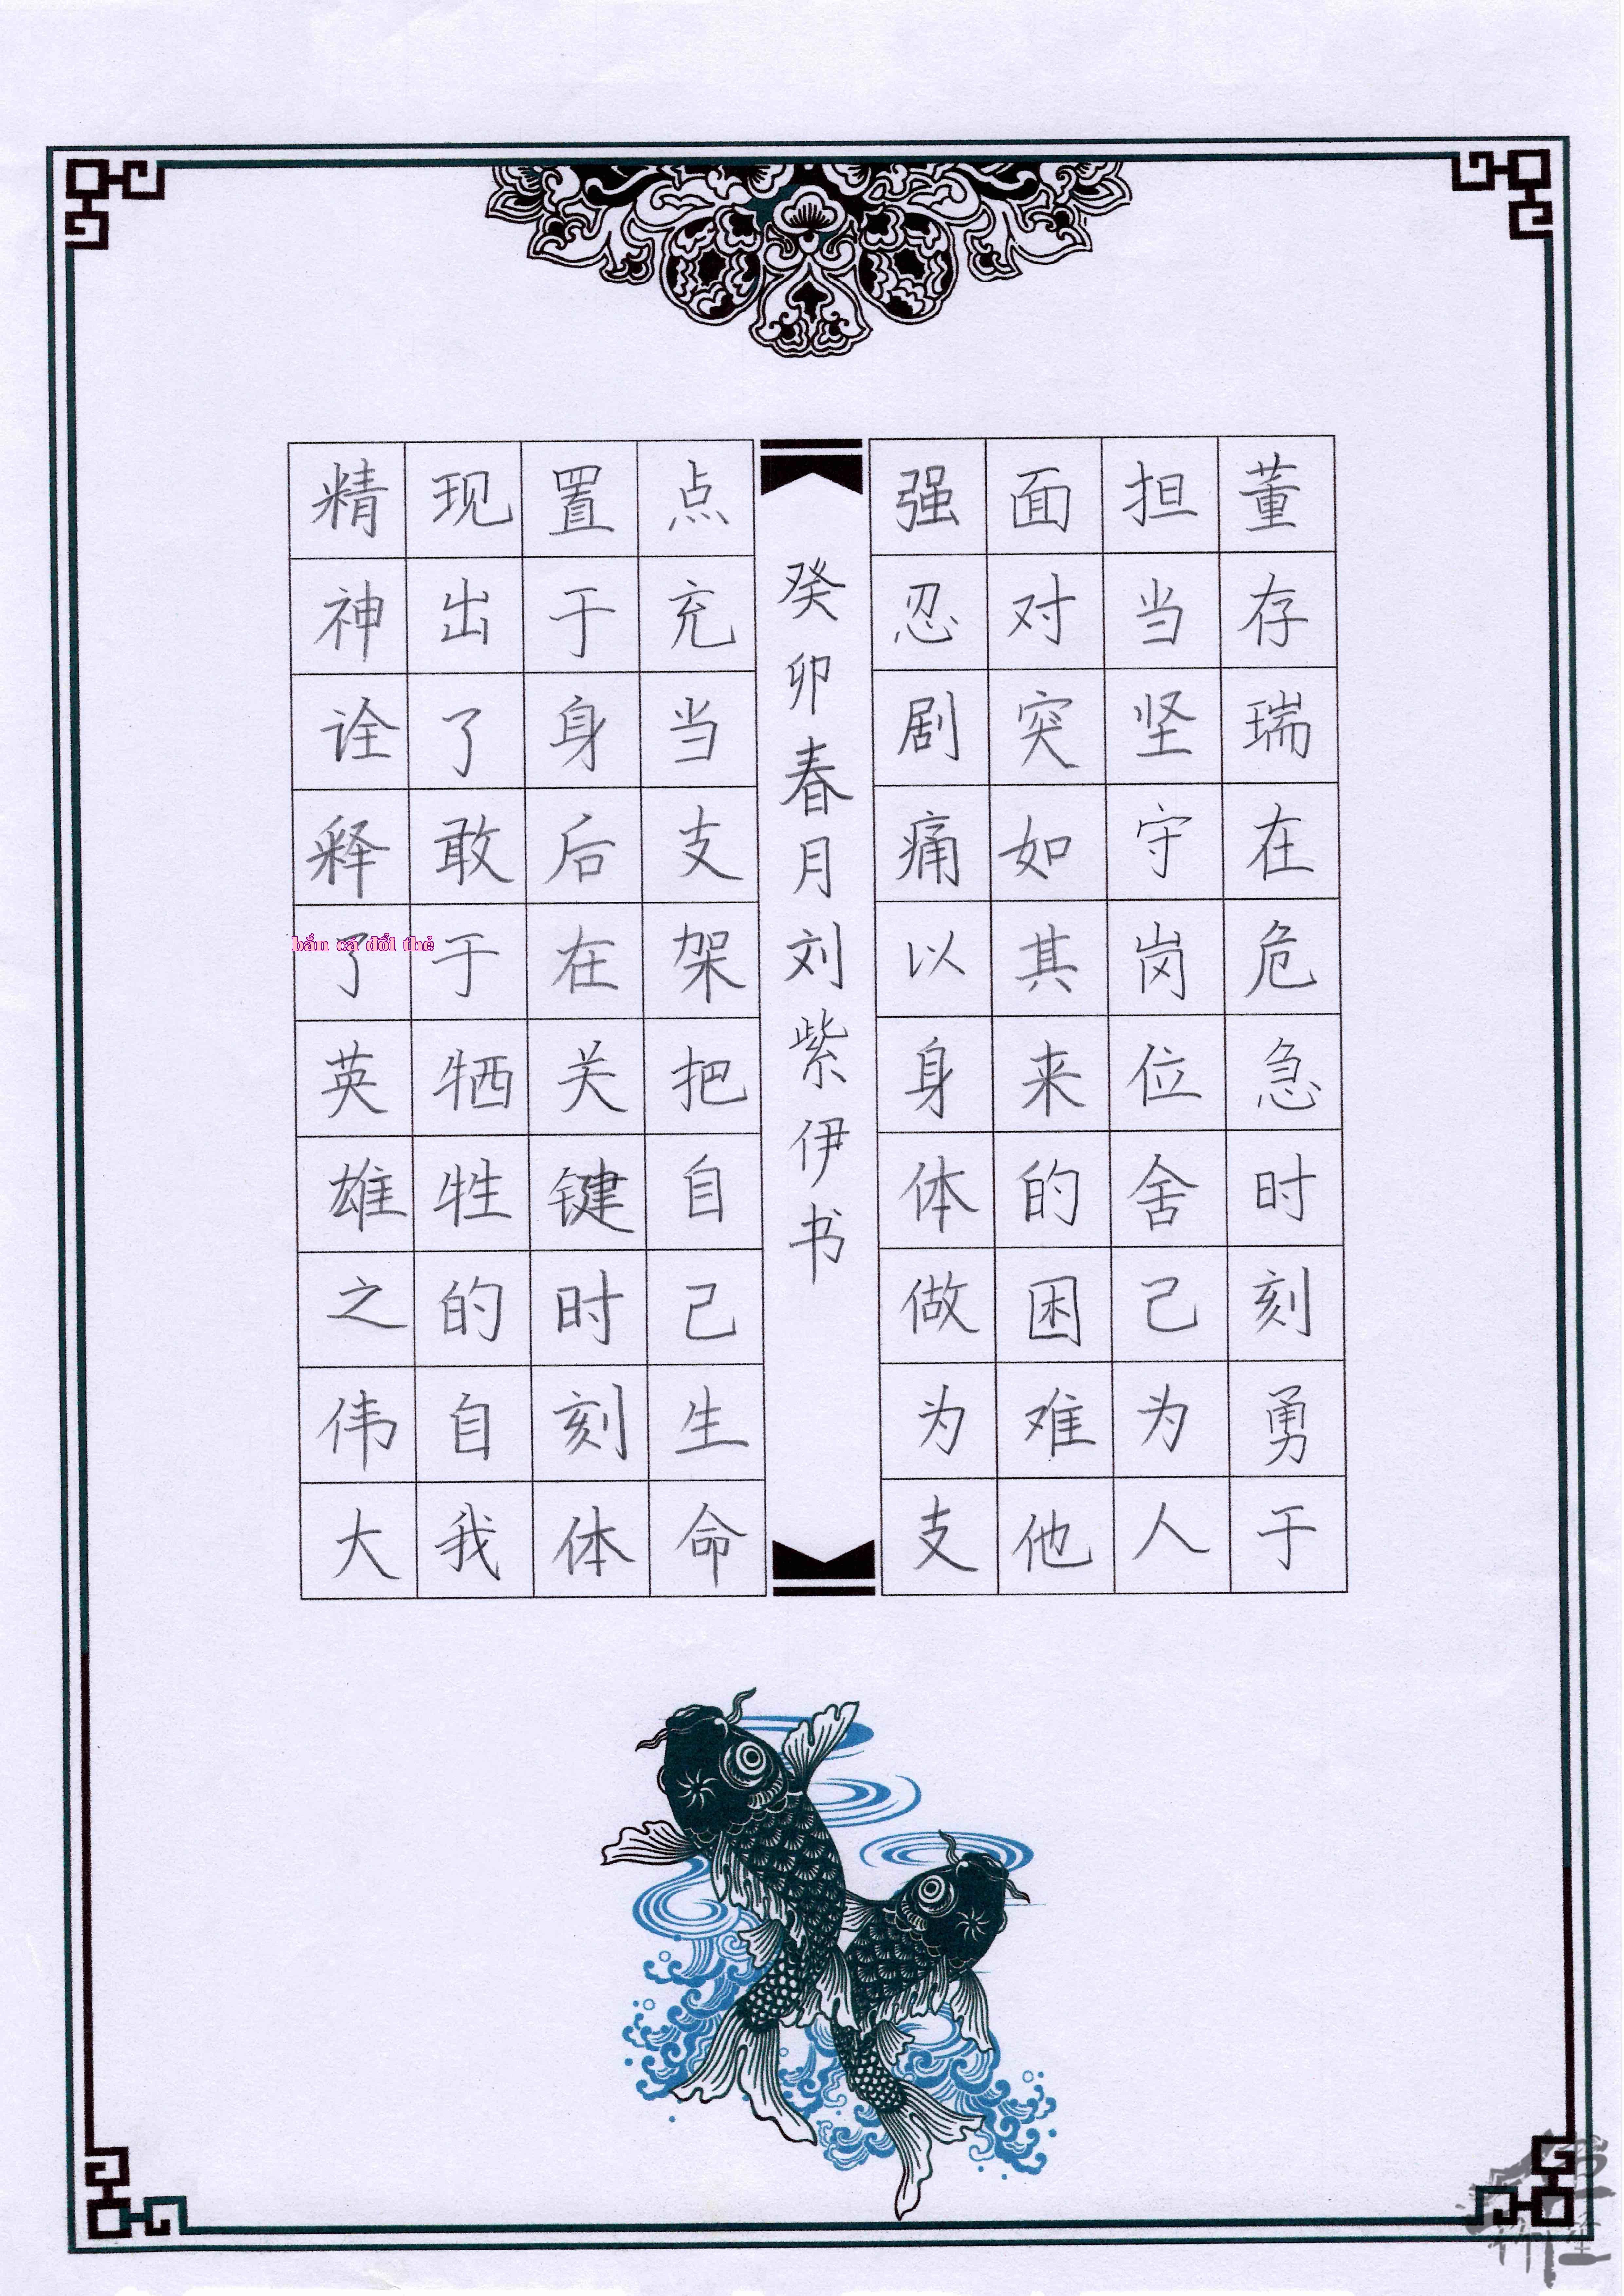 董存瑞在危急时刻勇于
担当坚守岗位舍己为人
面对突如其来的困难他
强忍剧痛以身体做为支
癸卯春月刘紫伊书
点充当支架把自己生命
置于身后在关键时刻体
现出了敢于牺牲的自我
精神诠释了英雄之伟大
bắn cá đổi thẻ